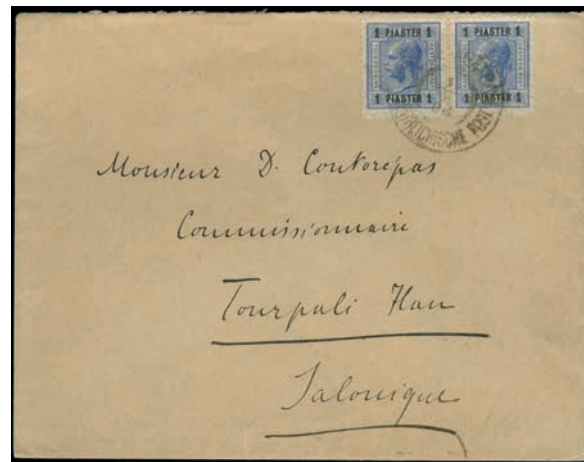 1 PIASTER 1 1 PIASTER 1
1 PIASTER 1 1 PIASTER 1
REICHISCHE POST
Monsieur D. Contorépas
Commissionnaire
Tourpali Han
Salonique